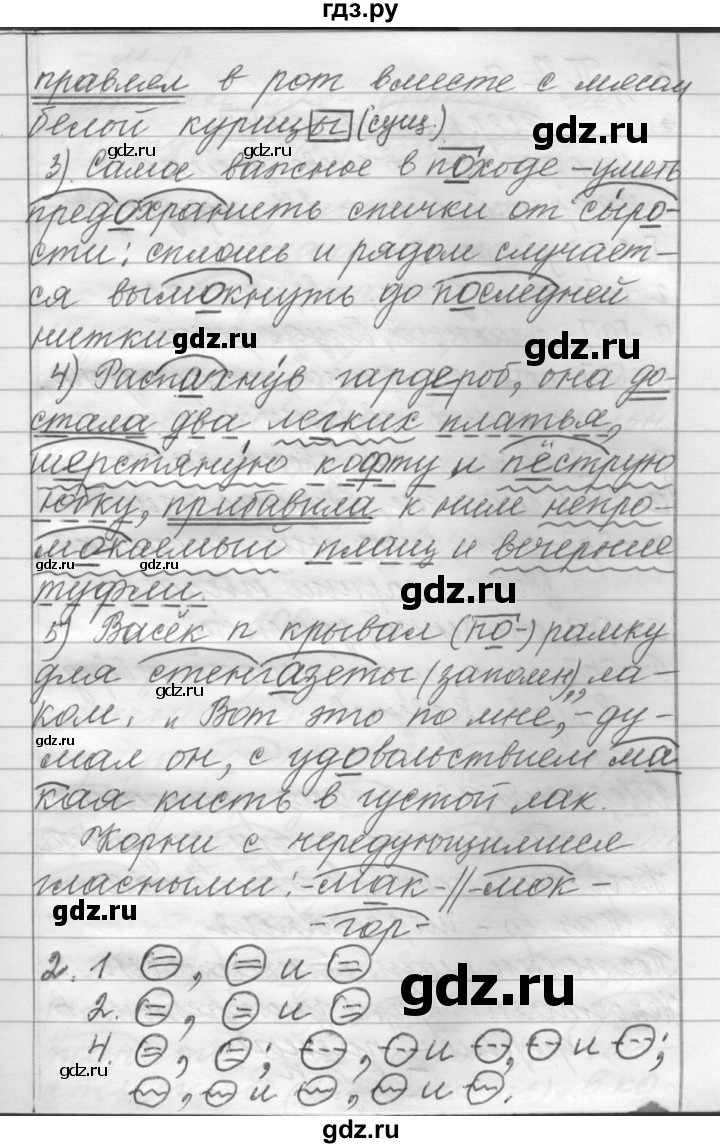 гдз.ру
правлял в рот вместе с мясом
белой курицы (сущ.)
gdz.ru
gdz.ru
gdz.ru
3) Самое важное в походе – уметь
предохранить спички от сыро-
сти: сплошь и рядом случает-
ся вымокнуть до последней
нитки.
gdz.ru
gdz.ru
gdz.ru
4) Распахнув гардероб, она до-
стала два легких платья,
шерстяную кофту и пёструю
юбку, прибавила к ним непро-
мокаемый плащ и вечерние
gdz.ru
gdz.ru
туфли.
gdz.ru
5) Васёк п крывал (по-) рамку
для стенгазеты (запомн) ла-
gdz.ru
ком. „Вот это по мне", – ду-
gdz.ru
мал он, с удовольствием ма
кая кисть в густой лак.
Корни с чередующимися
гласными: -мак-//-мок-
gdz.ru
-гор-
2. 1 =, = и =
gdz.ru
2. =, = и =
4. =, =; --, -- и --, -- и --;
gdz.ru
~, ~ и ~, ~ и ~.
gdz.ru
gdz.ru